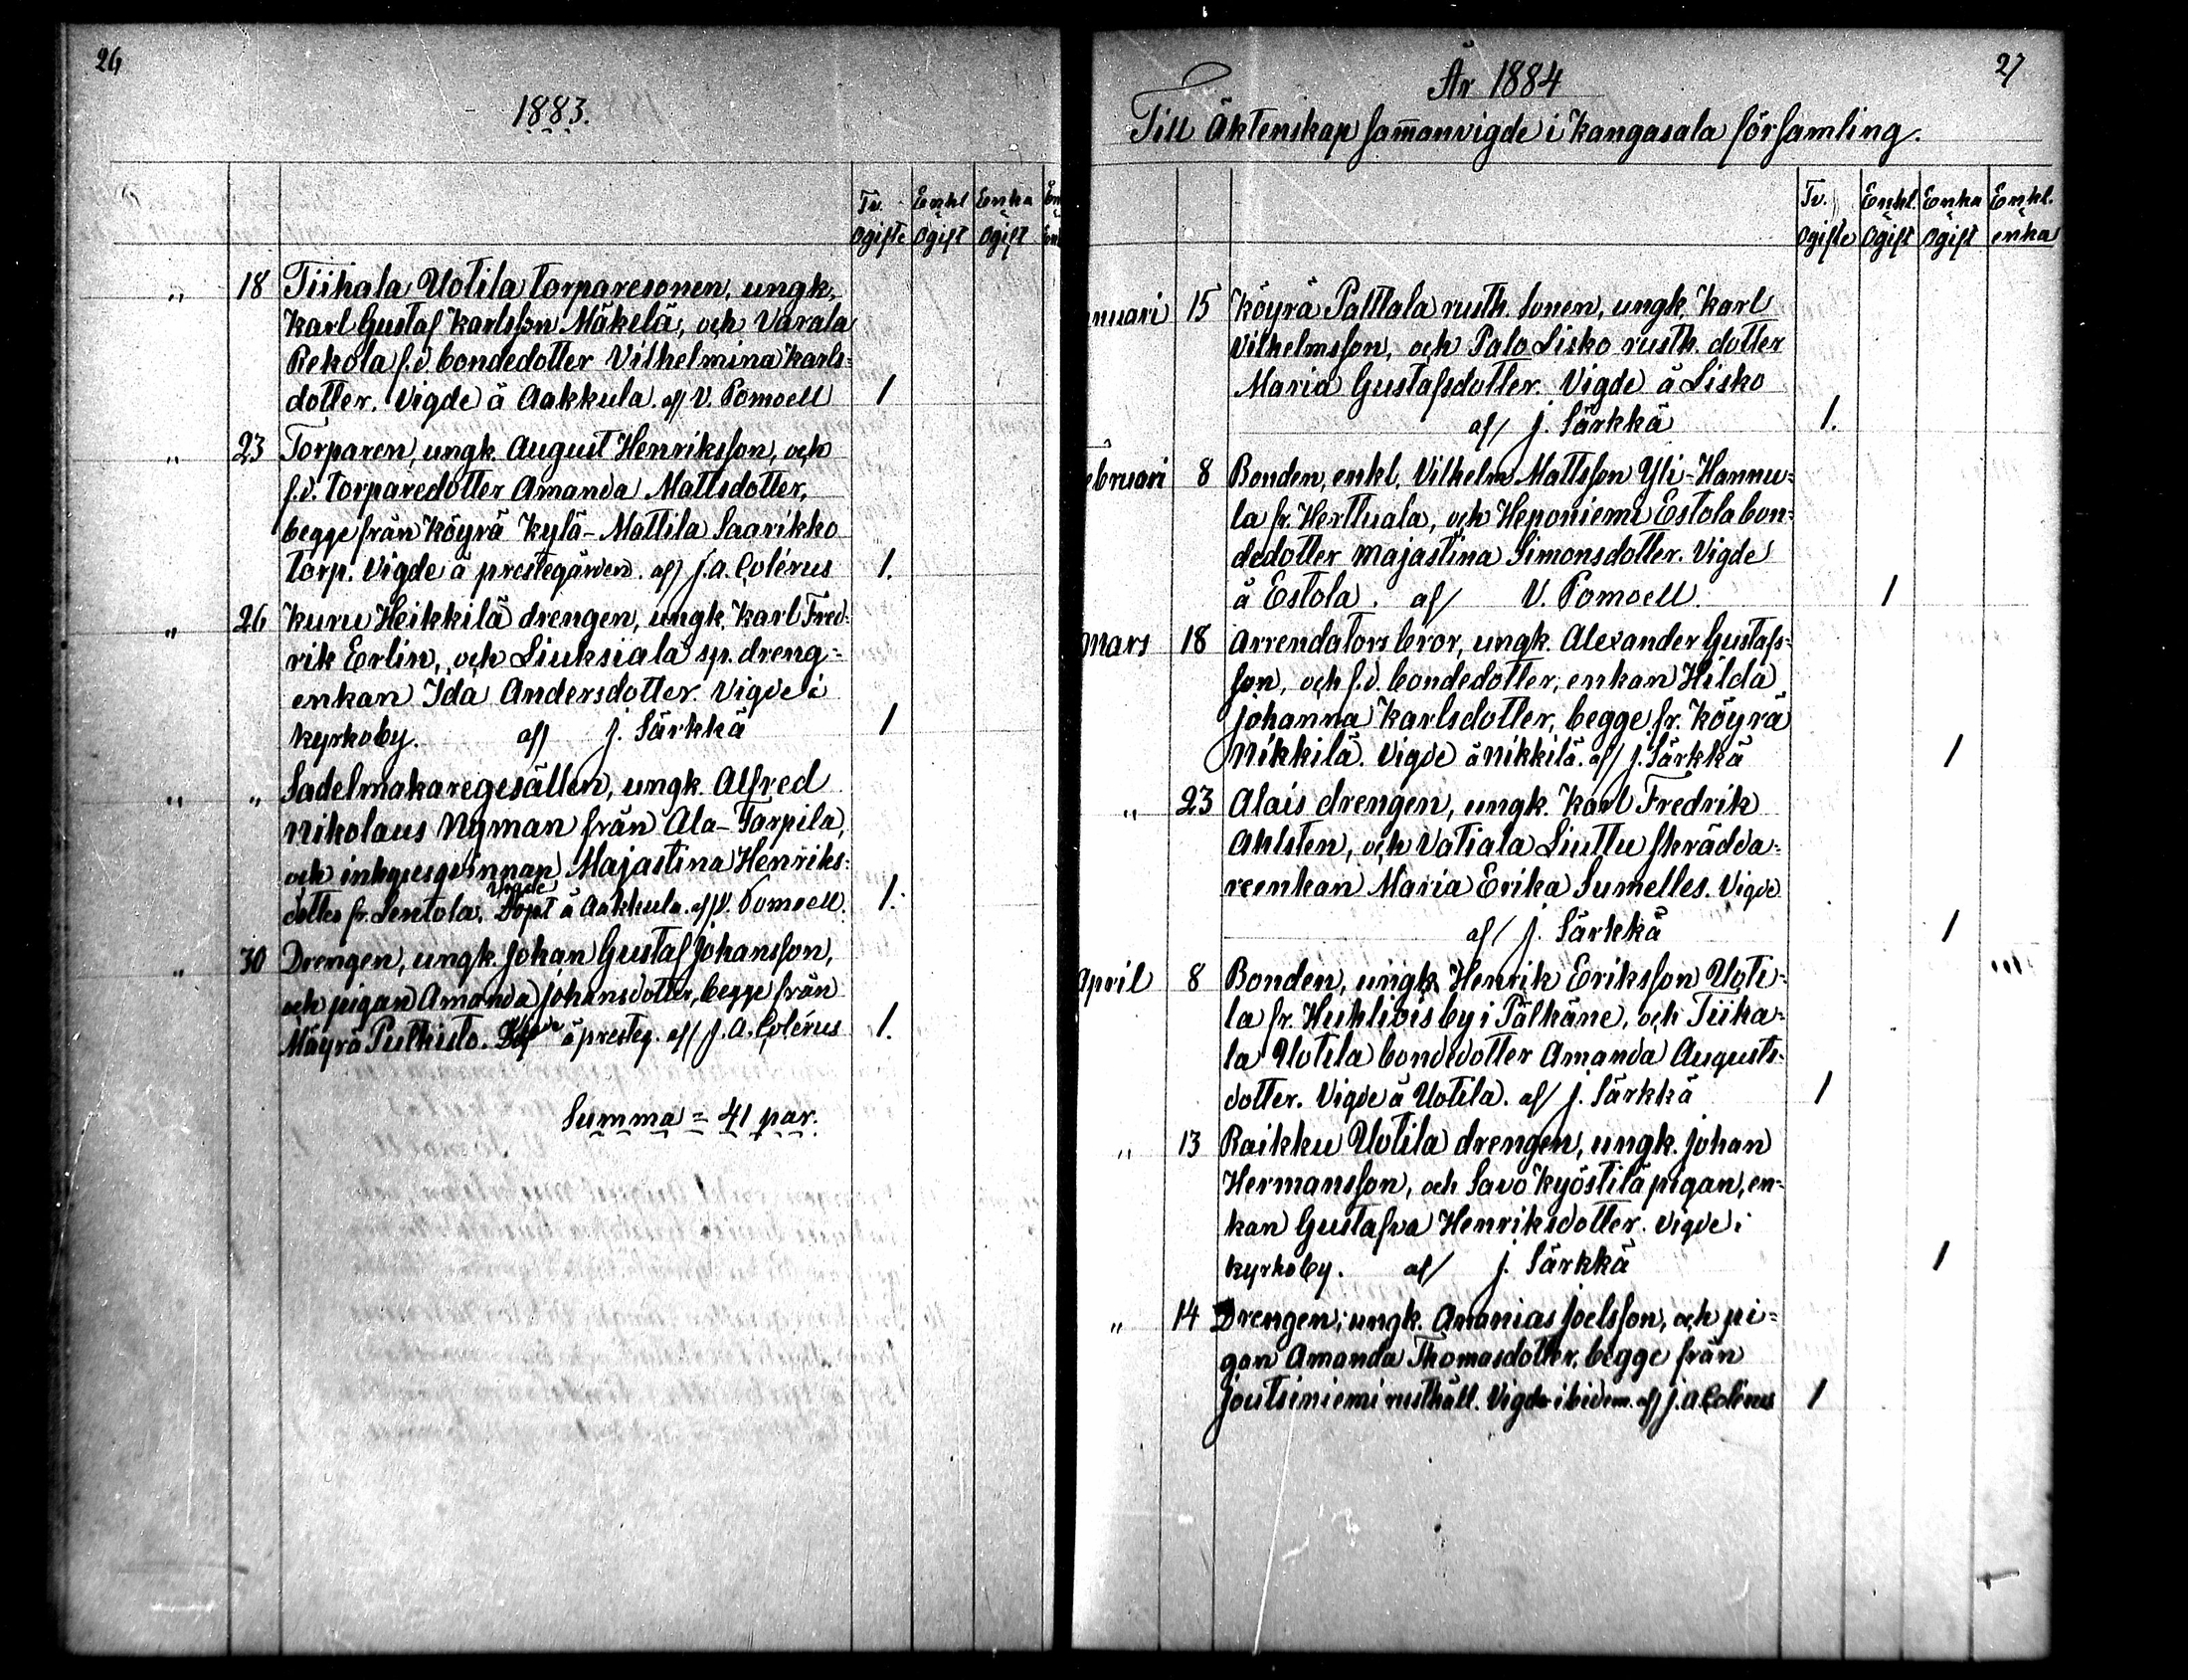 26
1883.
Tv. Enkl Enka En
ogifte ogift ogift
„ 18 Tiihala Uotila torparesonen, ungk.
Karl Gustaf Karlsson Mäkelä, och Varala
Rekola f.d. bondedotter Vilhelmina Karls-
dotter. Vigde å Aakkula. af V. Pomoell 1
„ 23 Torparen, ungk. August Henriksson, och
f.d. torparedotter Amanda Mattsdotter,
begge från Köyrä Kylä-Mattila Saarikko
torp. Vigde å prestegården. af J.A. Colérus 1.
„ 26 Kuru Heikkilä drengen, ungk. Karl Fred-
rik Erlin, och Liuksiala sp. dreng-
enkan Ida Andersdotter. Vigde i
kyrkoby. af J. Särkkä 1
„ „ Sadelmakaregesällen, ungk. Alfred
Nikolaus Nyman från Ala-Tarpila,
och inhysesqvinnan Majastina Henriks-
Vigde
dotter fr. Sentola. Döpt å Aakkula. af V. Pomoell. 1.
„ 30 Drengen, ungk. Johan Gustaf Johansson,
och pigan Amanda Johansdotter, begge från
Mäyrä Pulkisto. å presteg. af J.A. Colérus 1.
Summa = 41 par.
27
År 1884
Till Äktenskap sam̄anvigde i Kangasala församling.
Tv. Enkl. Enka Enkl.
ogifte ogift ogift enka
nuari 15 Köyrä Palttala rusth. sonen, ungk. Karl
Vilhelmsson, och Palo Lisko rusth. dotter
Maria Gustafsdotter. Vigde å Lisko
af J. Särkkä 1.
ebruari 8 Bonden, enkl. Vilhelm Mattsson Yli-Hannu-
la fr. Herttuala, och Heponiemi Estola bon-
dedotter Majastina Simonsdotter. Vigde
å Estola. af V. Pomoell. 1
Mars 18 Arrendators bror, ungk. Alexander Gustafs-
son, och f.d. bondedotter, enkan Hilda
Johanna Karlsdotter, begge fr. Köyrä
Nikkilä. Vigde å Nikkilä. af J. Särkkä 1
„ 23 Alais drengen, ungk. Karl Fredrik
Ahlsten, och Vatiala Liuttu skrädda-
reenkan Maria Erika Sumelles. Vigde
af J. Särkkä 1
April 8 Bonden, ungk. Henrik Eriksson Uoti-
la fr. Huhtiois by i Pälkäne, och Tiiha-
la Uotila bondedotter Amanda Augusts-
dotter. Vigde å Uotila. af J. Särkkä 1
„ 13 Raikku Uotila drengen, ungk. Johan
Hermansson, och Savo Kyöstilä pigan, en-
kan Gustafva Henriksdotter. Vigde i
kyrkoby. af J. Särkkä 1
„ 14 Drengen, ungk. Ananias Joelsson, och pi-
gan Amanda Thomasdotter, begge från
Joutsiniemi rusthåll. Vigde ibidem. af J.A. Colérus 1